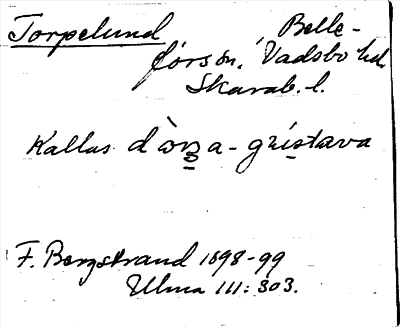 Torpelund Belle-
förs sn. Vadsbo hd.
Skarab. l.
Kallas dò̱rʒa-gri̱stava
F. Bergstrand 1898-99
Ulma 111:303.